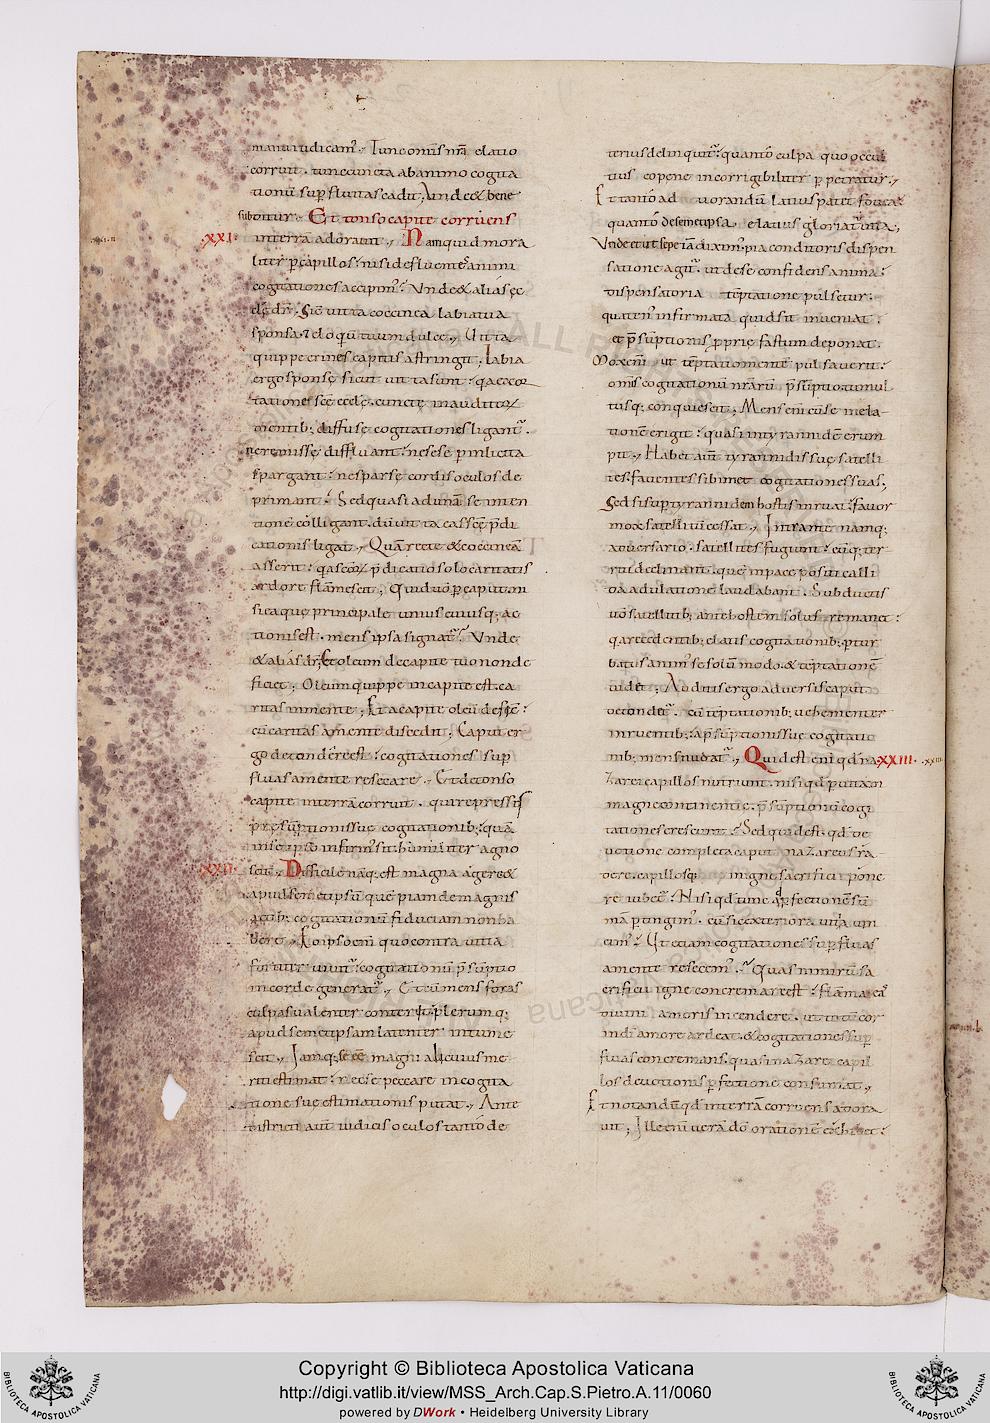 manuiudicam͛. Tunc omis nr̄a elatio
corruit. tunc cuncta ab animo cogita
tionū suꝑfluitas cadit; Unde & bene
subditur. Et tonso capite corruens
·XXI· in terrā adorauit. Nam quid mora
liter ꝑ capillos: nisi defluentes animi
cogitationes accipim͛? Unde & alias ęc
clesię dr̄. Sic uitta coccinea labia tua
sponsa. & eloquium tuum dulce. Uitta
quippe crines capitis astringit; Labia
ergo sponsę sicut uitta sunt: qa exor
tatione scę ecclę. cunctę in auditorū
mentib; diffusę cogitationes ligant͛.
ne remissę diffluant: ne sese ꝑ inlicita
spargant: ne sparsę cordis oculos de
primant: Sed quasi ad unā se inten
tionē colligant. dū uitta eas scę p̄di
cationis ligat. Quā recte & coccineā
asserit: qa scorū p̄dicatio solo caritatis
ardore flāmescit. Quid uō ꝑ caput. ni
si ea quę principale uniuscuiusq; ac
tionis est. mens ipsa signat͛? Unde
& alias dr̄; Et oleum de capite tuo non de
ficiet; Oleum quippe in capite est. ca
ritas in mente; Et a capite oleū deficit:
cū caritas a mente discedit; Caput er
go detondere est: cogitationes suꝑ
fluas a mente resecare. Et detonso
capite in terrā corruit. qui repressis
p̄sūptionis suę cogitationib; quā
in se ipso infirm͛ sit. humiliter agno
·XXII· scit. Difficile nāq; est magna agere &
apud semetipsū quēpiam de magnis
actib; cogitationū fiduciam non ha
bere. Eo ipso eni quo contra uitia
fortiter uiuit͛: cogitationū p̄sūptio
in corde generat͛. Et cū mens foras
culpas ualenter conterit. plerumq;
apud semetipsam latenter intume
scit. Iamq; se ēē magni alicuius me
riti estimat: nec se peccare in cogita
tione suę estimationis putat. Ante
districti aut̄ iudicis oculos tanto de
terius delinquit͛: quanto culpa quo occul
tius eo pene incorrigibiliter ꝑpetratur.
Et tanto ad uorandū latius patet fouea:
quanto de semetipsa elatius gloriat͛ uita.
Unde et ut sepe iā dixim͛. pia conditoris dispen
satione agit͛. ut de se confidens anima:
dispensatoria tēptatione pulsetur:
quaten͛ infirmata quid sit inueniat:
et p̄sūptionis ꝓprię fastum deponat.
Mox eni ut tēptationē mente pulsauerit:
omis cogitationū nr̄arū p̄sūptio. tumul
tusq; conquiescit. Mens eni cū se in ela
tione erigit: quasi in tyrannidē erum
pit. Habet aut̄ tyrannidis suę satelli
tes. fauentes sibimet cogitationes suas;
Sed si suꝑ tyrannidem hostis inruat: fauor
mox satellitū cessat. Intrante namq;
aduersario. satellites fugiunt: eūq; ter
riti declinant. quę in pace positi calli
da adulatione laudabant. Subductis
uō satellitib; ante hostem solus remanet:
qa recedentib; elatis cogitationib; ꝑtur
batus anim͛ se solū modo. & tēptationē
uidet; Auditis ergo aduersis caput
detondet͛. cū tēptationib; uehementer
inruentib; a p̄sūptionis suę cogitatio
nib; mens nudat͛. Quid est eni qd na ·XXIII·
zarei capillos nutriunt. nisi qd ꝑ uitam
magnę continentię. p̄sūptionū cogi
tationes crescunt. Sed quid est. qd de
uotione completa caput nazareus ra
dere. capillosq; in igne sacrificii pone
re iubet͛? Nisi qd tunc ad ꝑfectionē sū
mā ꝑtingim͛. cū sic exteriora uitia uin
cim͛? Ut etiam cogitationes suꝑfluas
a mente resecem͛? Quas nimirū sa
crificii igne concremare est: flāma eas
diuini amoris incendere. ut totū cor
in dī amore ardeat. & cogitationes suꝑ
fluas concremans. quasi nazarei capil
los deuotionis ꝑfectione consumat.
Et notandū qd in terrā corruens adora
uit; Ille eni uerā dō orationē exhibet:
Copyright © Biblioteca Apostolica Vaticana
http://digi.vatlib.it/view/MSS_Arch.Cap.S.Pietro.A.11/0060
powered by DWork • Heidelberg University Library
BIBLIOTECA APOSTOLICA VATICANA
BIBLIOTECA APOSTOLICA VATICANA